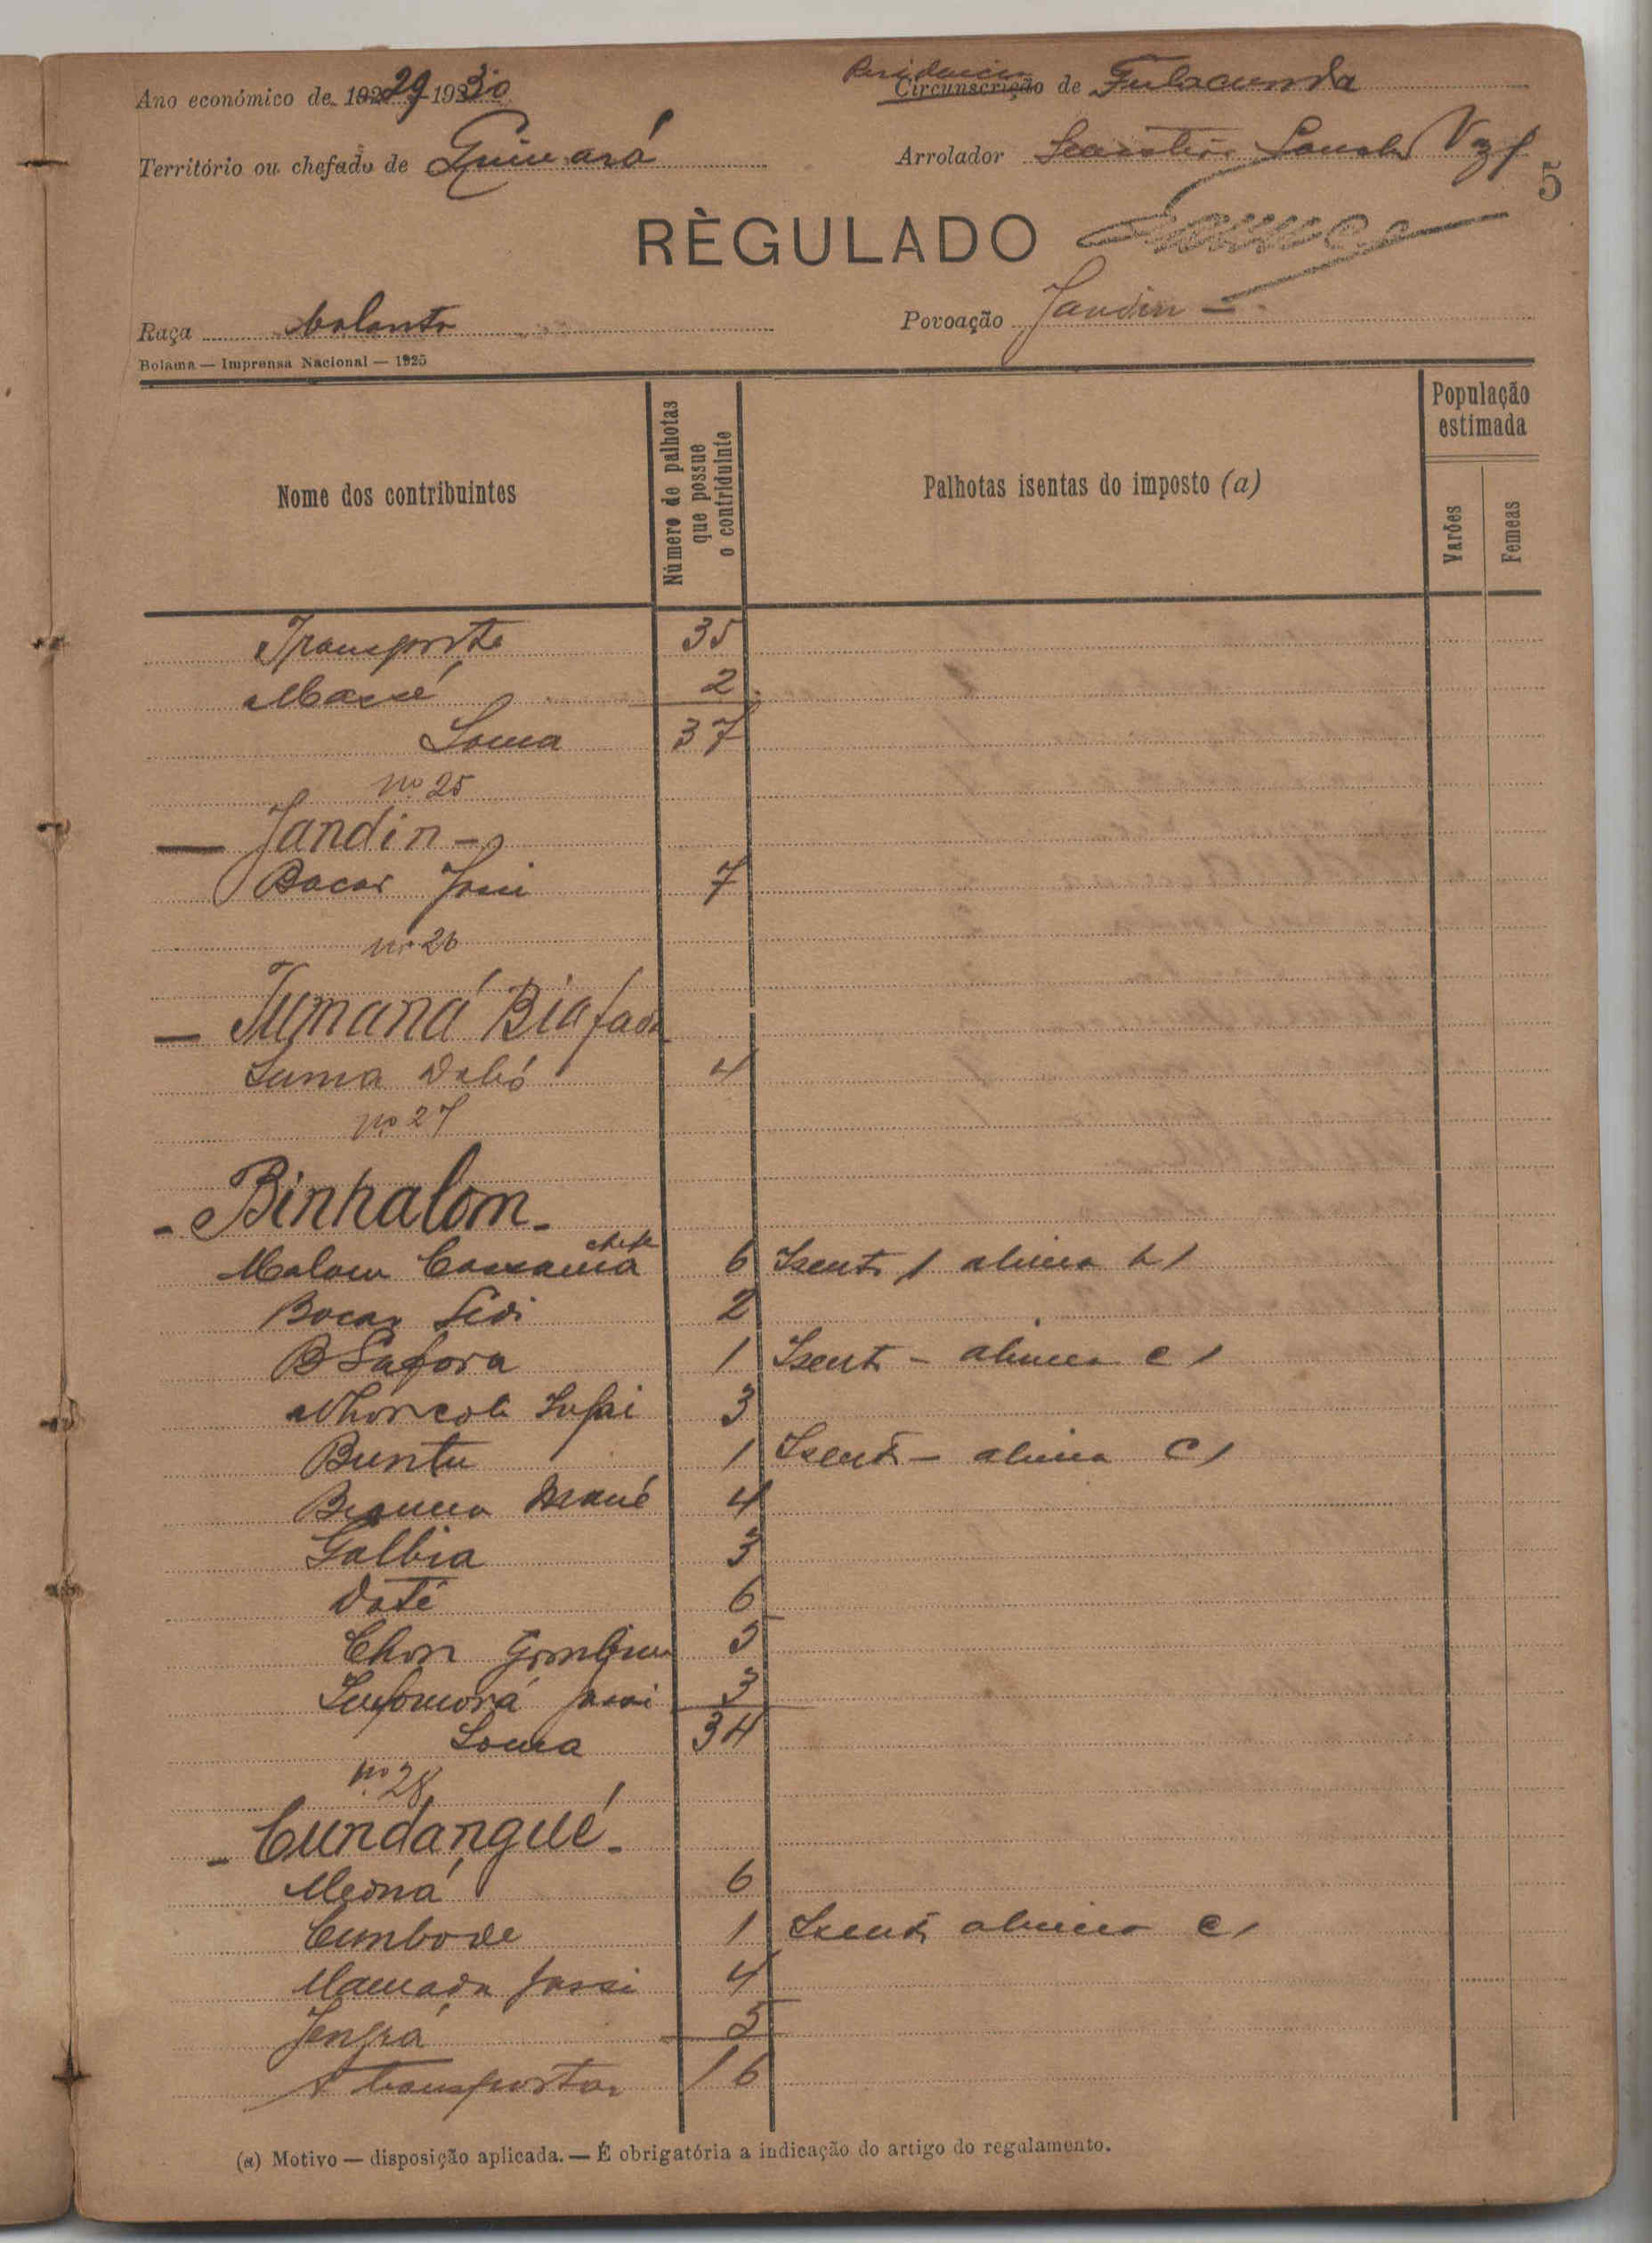 Ano económico de 1929-1930
Residencia
Circunscrição de Fulacunda
Território ou chefado de Guinará
Arrolador Vaz
5
RÈGULADO
Raça balanta
Povoação Jandin -
Bolama — Imprensa Nacional — 1925
Nome dos contribuintes
Número de palhotas que possue o contriduinte
Palhotas isentas do imposto (a)
População estimada
Varões
Femeas
Transporte 35
2
Soma 37
nº 25
— Jandin -
Bacar 7
nº 26
— Tumaná Biafada
Dabó 4
nº 27
- Binhalom -
chefe
Malam Cassamá 6 Isento 1 alinea b)
Bocar Sidi 2
B Safora 1 Isento - alinea c)
3
Buntu 1 Isento - alinea c)
Mané 4
Galbia 3
Daté 6
Chon 5
3
Soma 34
nº 28
- Cundangué -
Meoná 6
Cumbode 1 Isento alinea c)
Mamadu Jassi 4
5
A transportar 16
(a) Motivo — disposição aplicada. — É obrigatória a indicação do artigo do regulamento.